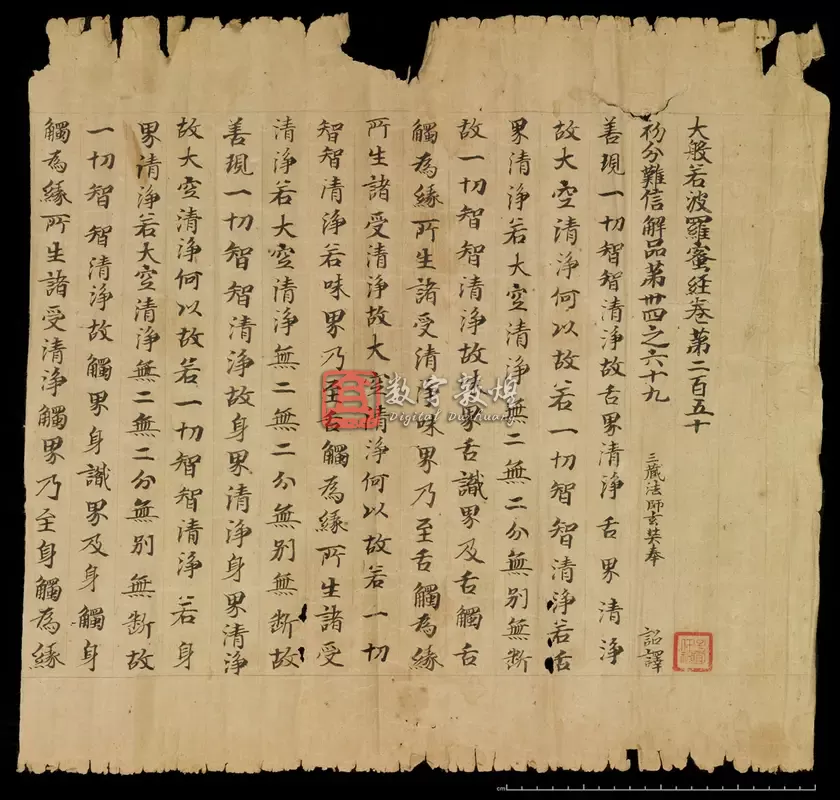 大般若波羅蜜經卷第二百五十
初分難信解品第卅四之六十九 三藏法師玄奘奉 詔譯
善現一切智智清淨故舌界清淨舌界清淨
故大空清淨何以故若一切智智清淨若舌
界清淨若大空清淨無二無二分無別無斷
故一切智智清淨故味界舌識界及舌觸舌
觸為緣所生諸受清淨味界乃至舌觸為緣
所生諸受清淨故大空清淨何以故若一切
智智清淨若味界乃至舌觸為緣所生諸受
清淨若大空清淨無二無二分無別無斷故
善現一切智智清淨故身界清淨身界清淨
故大空清淨何以故若一切智智清淨若身
界清淨若大空清淨無二無二分無別無斷故
一切智智清淨故觸界身識界及身觸身
觸為緣所生諸受清淨觸界乃至身觸為緣
数字敦煌
Digital Dunhuang
cm